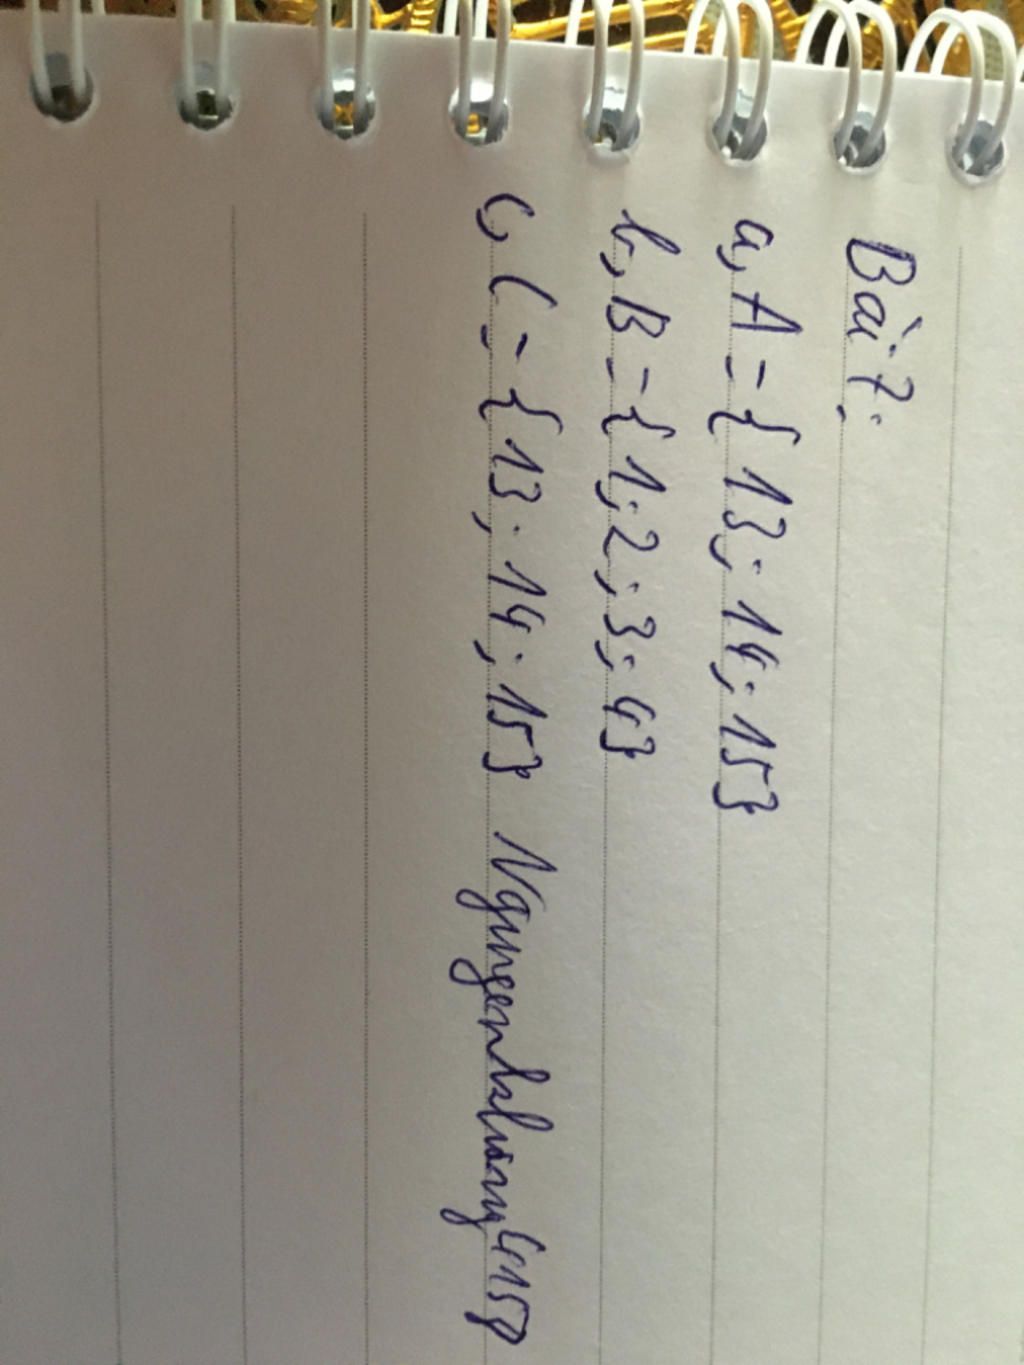 Bài 7:
a, A = { 13; 14; 15}
b, B = { 1; 2; 3; 4}
c, C = { 13; 14; 15}